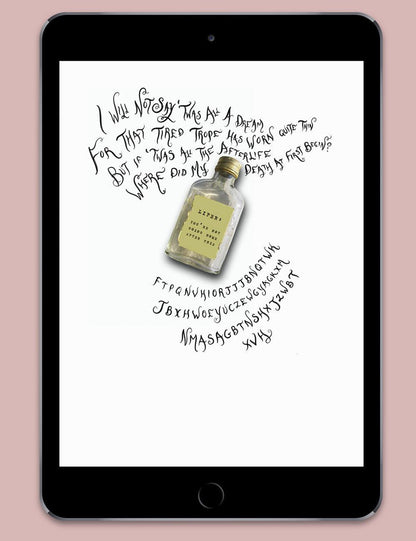 I Will Not Say 'Twas All A Dream
For That Tired Trope Has Worn Quite Thin
But if 'Twas All The Afterlife
Where Did My Death At First Begin?
LIPER:
YOU'RE NOT
GOING HOME
AFTER THIS
FTPQNVHIORJJJBNQTWK
JBXHWOEYUCZEWGYAGKXM
NMASAGBTNSHXJZWBT
XVH